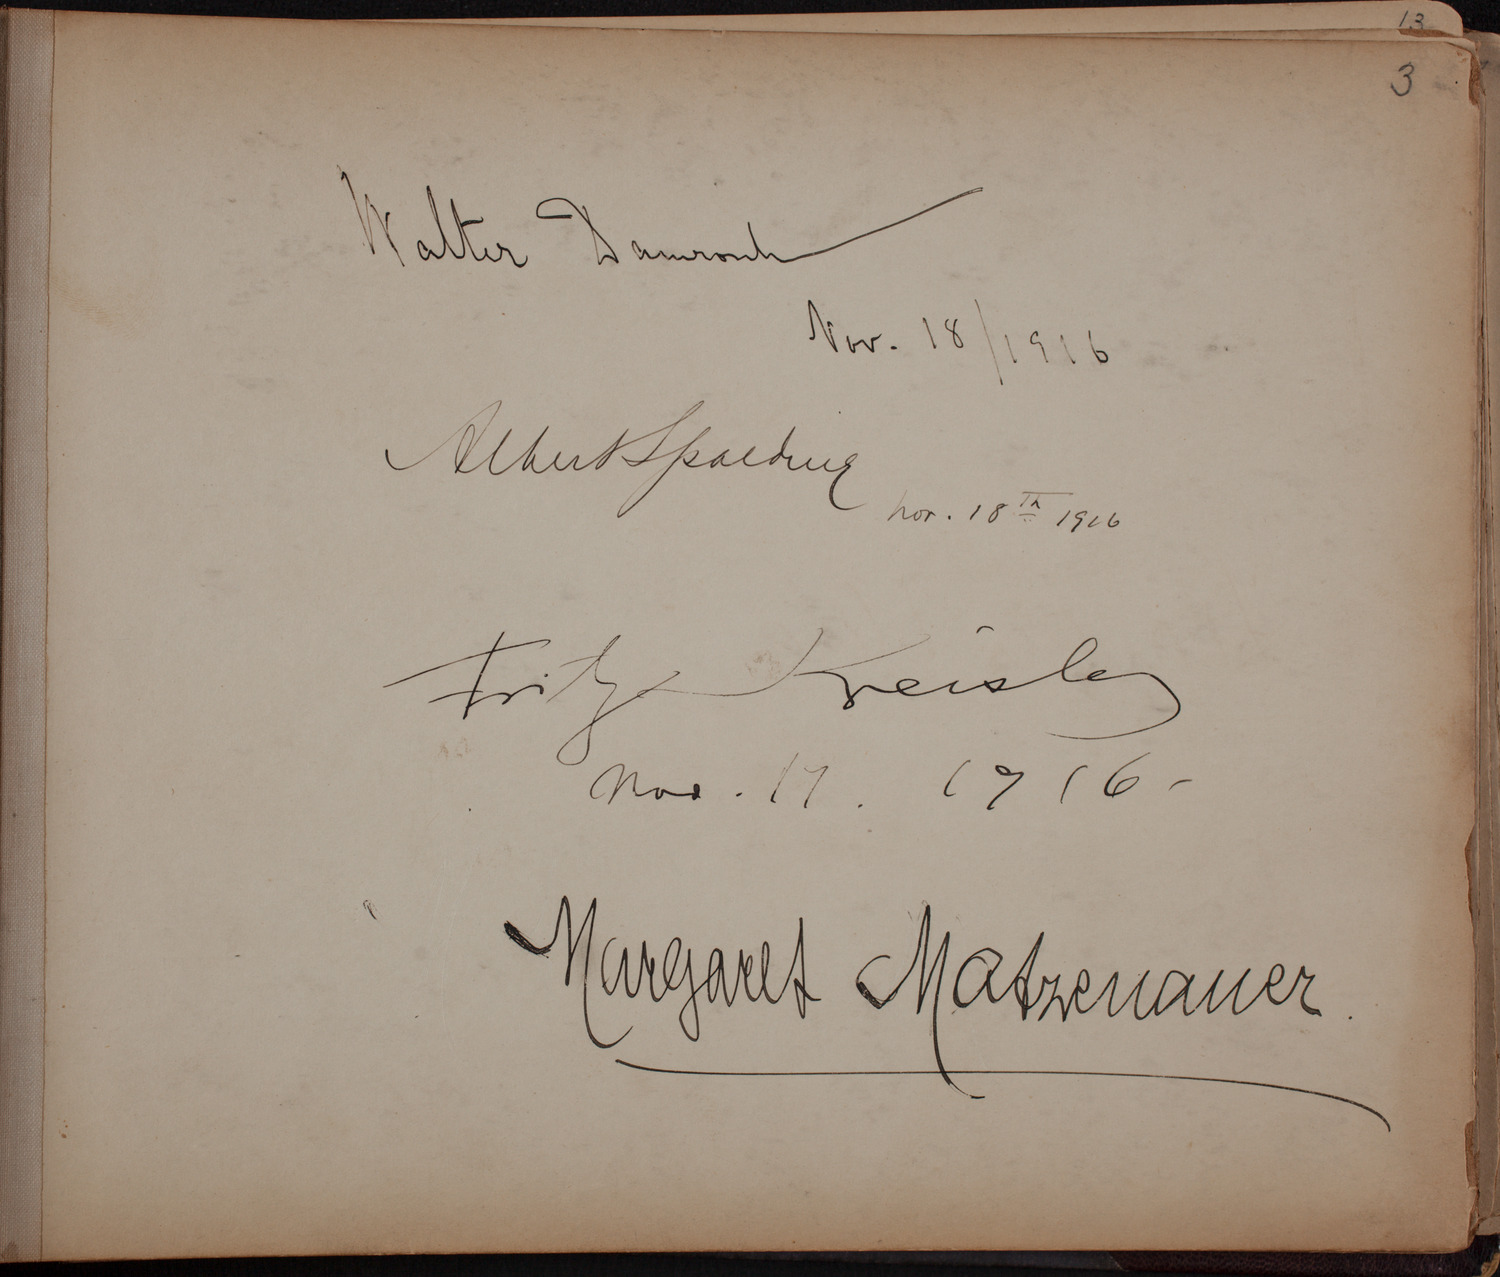 13
3
Walter Damrosch
Nov. 18/1916
Albert Spalding
Nov. 18th 1916
Fritz Kreisler
Nov. 17. 1916-
Margaret Matzenauer.